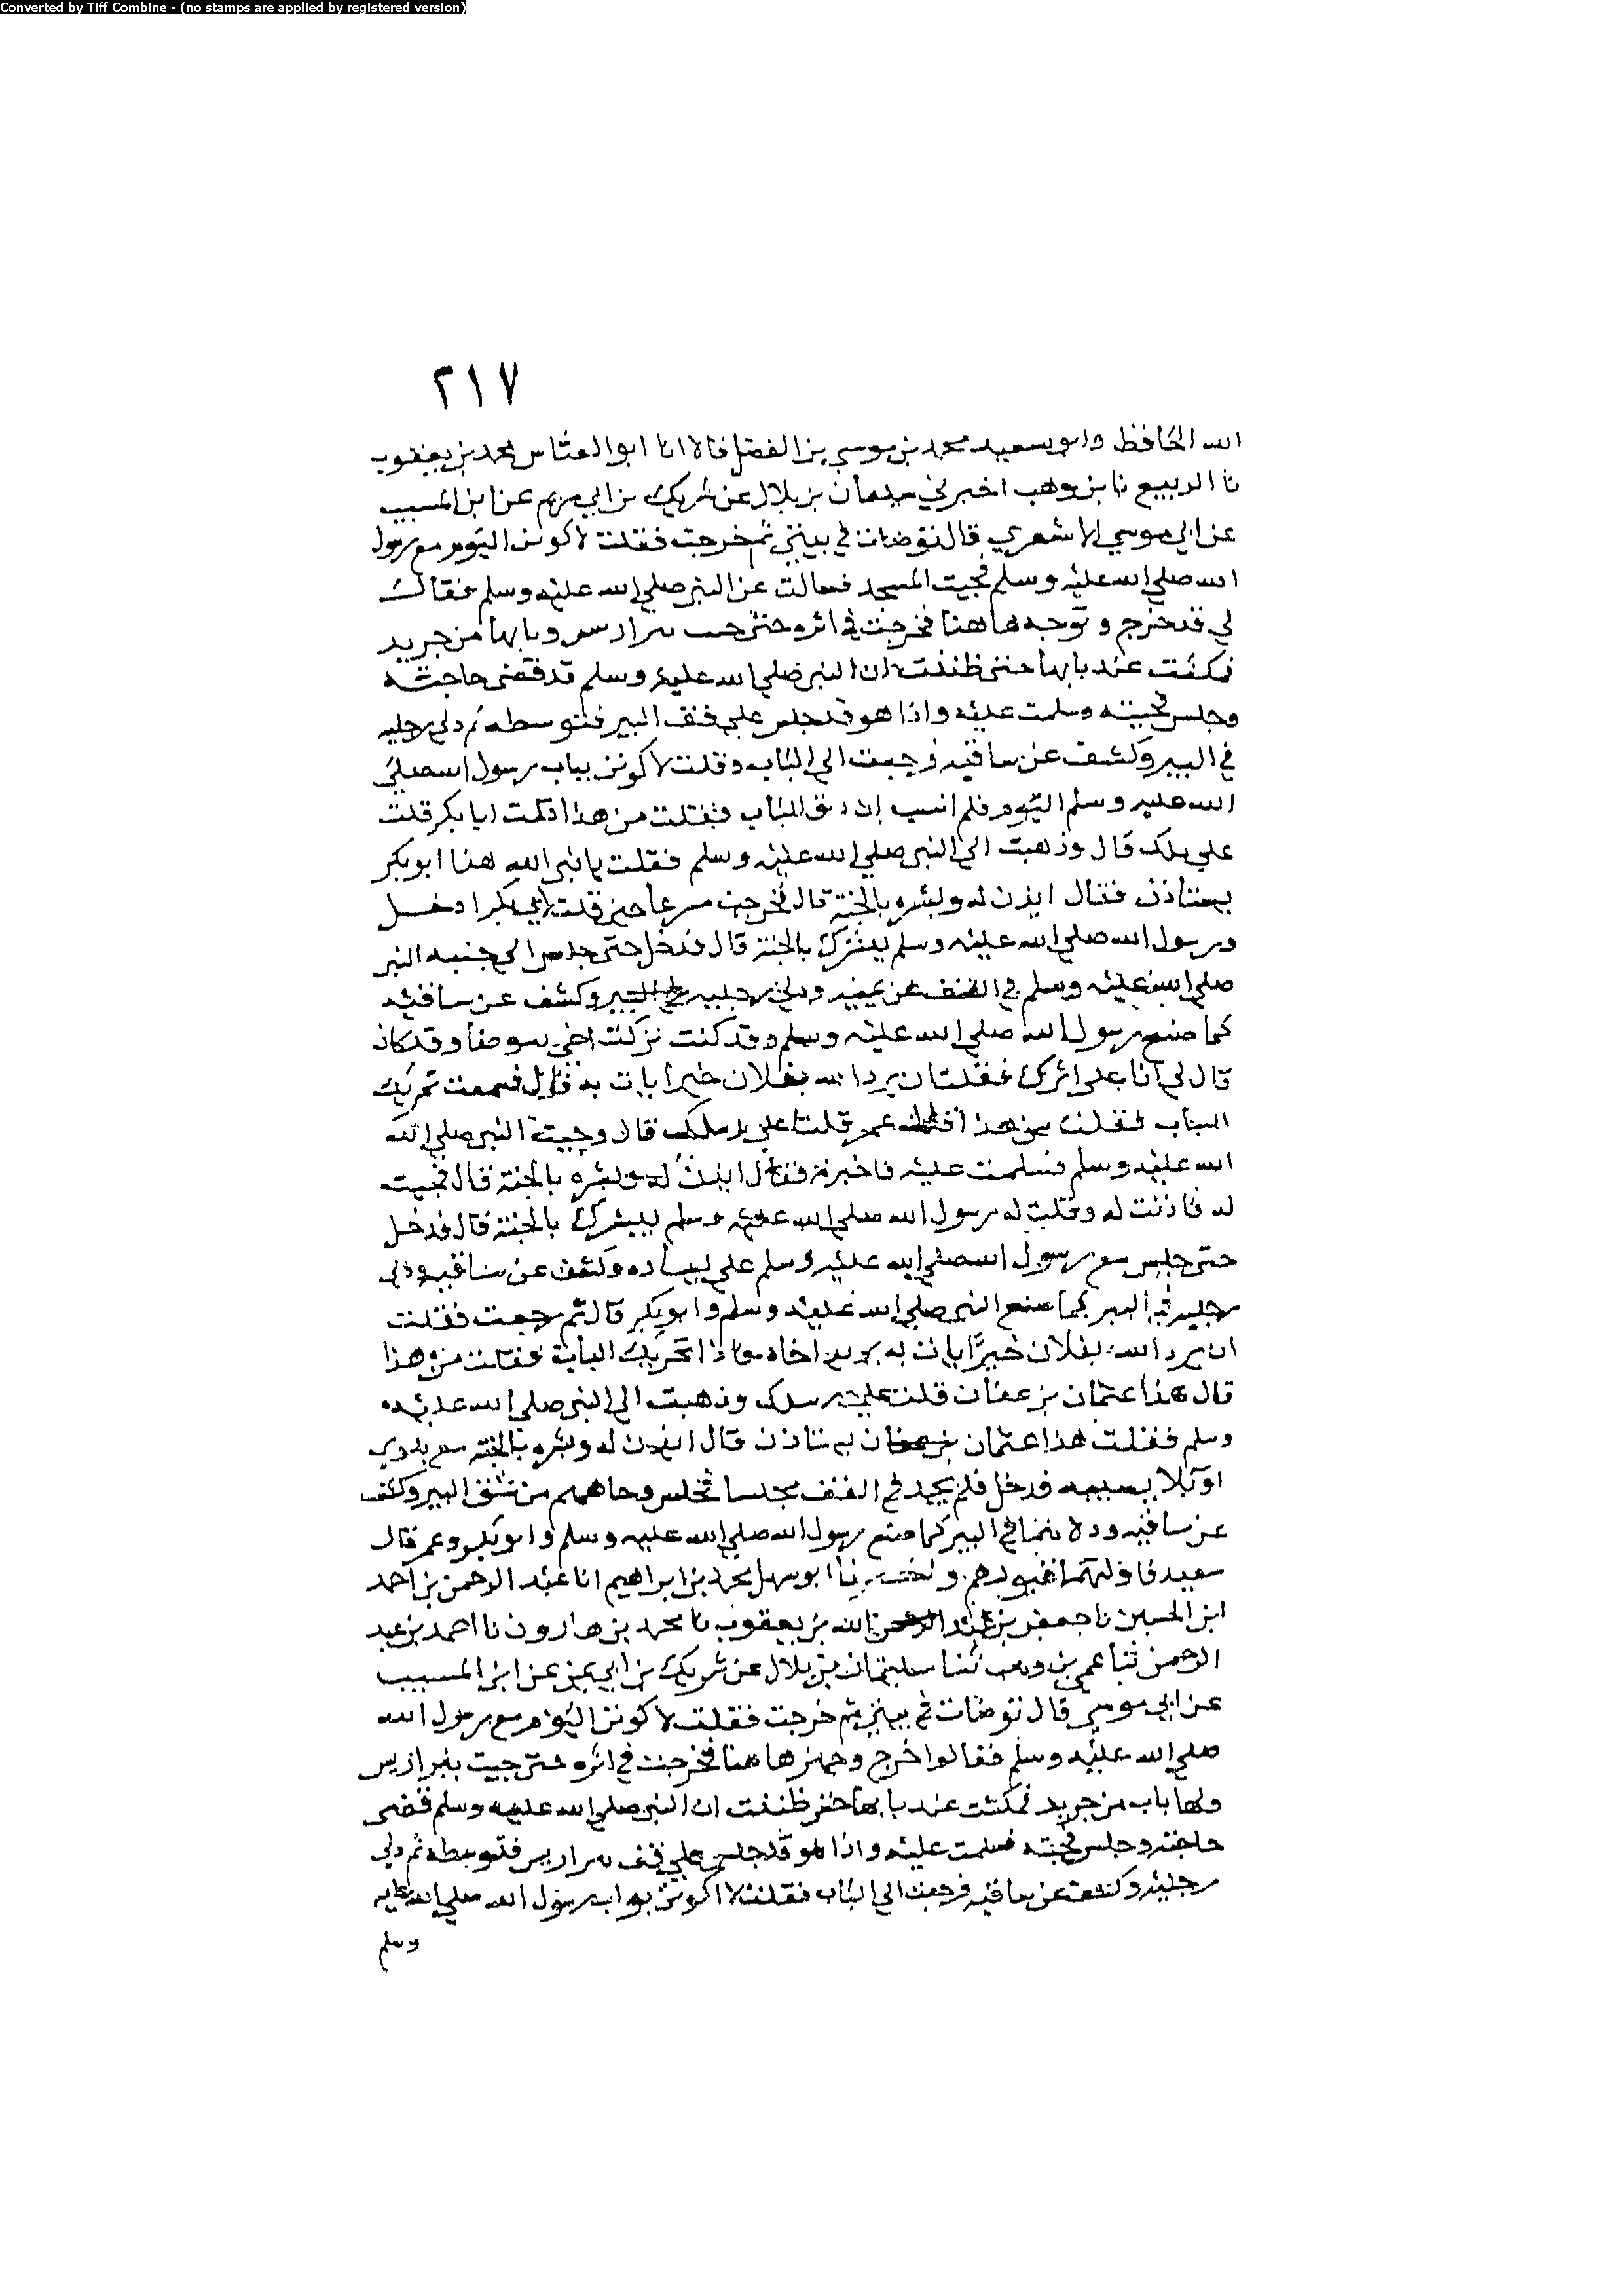 Converted by Tiff Combine - (no stamps are applied by registered version)
٢١٧
الله الحافظ وابو سعيد محمد بن موسي بن الفضل قالا انا ابو العباس محمد بن يعقوب
نا الربيع نا بن وهب اخبرني سليمان بن بلال عن شريك بن ابي عن ابن المسيب
عن ابي موسي الاشعري قال توضات في بيتي ثم خرجت فقلت لاكونن اليوم مع رسول
الله صلي الله عليه وسلم فجيت المسجد فسالت عن النبي صلي الله عليه وسلم فقال
لي قد خرج وتوجه هاهنا فخرجت في اثره حتي وبابها من جريد
فمكثت عند بابها حتي ظننت ان النبي صلي الله عليه وسلم قد قضي حاجته
وجلس فجيته وسلمت عليه واذا هو قد جلس علي قف البير فتوسطه ثم دلي رجليه
في البير وكشف عن ساقيه فرجعت الي الباب وقلت لاكونن بباب رسول الله صلي
الله عليه وسلم اليوم فلم انسب ان دق الباب فقلت من هذا ابا بكر قلت
علي قال وذهبت الي النبي صلي الله عليه وسلم فقلت يا نبي الله هذا ابو بكر
يستاذن فقال ايذن له وبشره بالجنة قال فخرجت مسرعا حتي قلت لابي بكر ادخل
ورسول الله صلي الله عليه وسلم يبشرك بالجنة قال فدخل حتي جلس الي جنبه النبي
صلي الله عليه وسلم في القف عن يمينه ودلي رجليه في البير وكشف عن ساقيه
كما صنع رسول الله صلي الله عليه وسلم وقد كنت تركت اخي يتوضا وقد كان
قال لي انا علي اثرك فقلت ان يرد الله بفلان خيرا يات به قال فسمعت تحريك
الباب فقلت من هذا عمر قلت علي رسلك قال وجيت النبي صلي الله
الله عليه وسلم فسلمت عليه فاخبرته فقال ايذن له وبشره بالجنة قال فجيت
له فاذنت له وقلت له رسول الله صلي الله عليه وسلم يبشرك بالجنة قال فدخل
حتي جلس مع رسول الله صلي الله عليه وسلم علي يساره وكشف عن ساقيه ودلي
رجليه في البير كما صنع النبي صلي الله عليه وسلم وابو بكر قال ثم رجعت فقلت
ان يرد الله بفلان خيرا يات به يريد اخاه فاذا تحريك الباب فقلت من هذا
قال هذا عثمان بن عفان قلت علي رسلك وذهبت الي النبي صلي الله عليه
وسلم فقلت هذا عثمان بن عفان يستاذن قال ايذن له وبشره بالجنة مع بلوي
او بلا يصيبه فدخل فلم يجد في القف مجلسا فجلس وجاههم من شق البير وكشف
عن ساقيه ودلاهما في البير كما صنع رسول الله صلي الله عليه وسلم وابو بكر وعمر قال
سعيد فاولتهما قبورهم ابو سهل محمد بن ابراهيم انا عبد الرحمن بن احمد
ابن الحسين نا جعفر بن عبد الله بن يعقوب نا محمد بن هارون نا احمد بن عبد
الرحمن ثنا عمي بن وهب ثنا سليمان بن بلال عن شريك بن ابي نمر عن ابن المسيب
عن ابي موسي قال توضات في بيتي ثم خرجت فقلت لاكونن اليوم مع رسول الله
صلي الله عليه وسلم فقالوا خرج هاهنا فخرجت في اثره حتي جيت بير اريس
ولها باب من جريد فمكثت عند بابها حتي ظننت ان النبي صلي الله عليه وسلم قضي
حاجته وجلس فجيته فسلمت عليه واذا هو قد جلس علي قف بير اريس فتوسطه ثم دلي
رجليه وكشف عن ساقيه فرجعت الي الباب فقلت لاكونن بواب رسول الله صلي الله عليه
وسلم